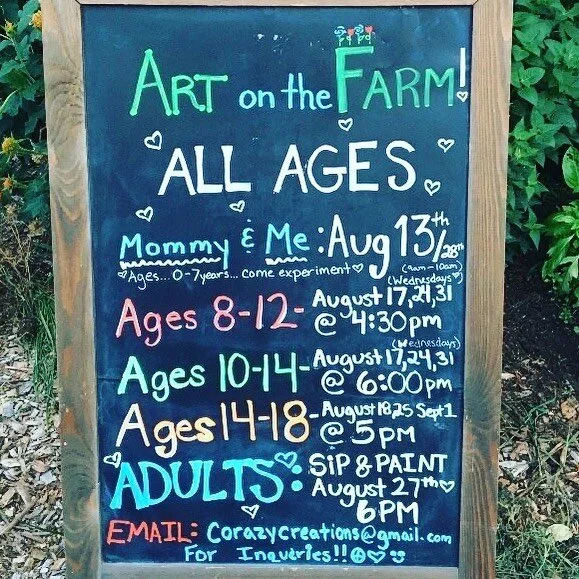 ART on the FARM!
ALL AGES
Mommy & Me: Aug 13th/28th
(9am-10am)
Ages... 0-7years... come experiment
(Wednesdays)
Ages 8-12- August 17,24,31
@ 4:30pm
(Wednesdays)
Ages 10-14- August 17,24,31
@ 6:00pm
Ages 14-18- August 18,25 Sept 1
@ 5pm
ADULTS: SiP & PAINT
August 27th
6PM
EMAIL: Corazycreations@gmail.com
For Inqueries!!